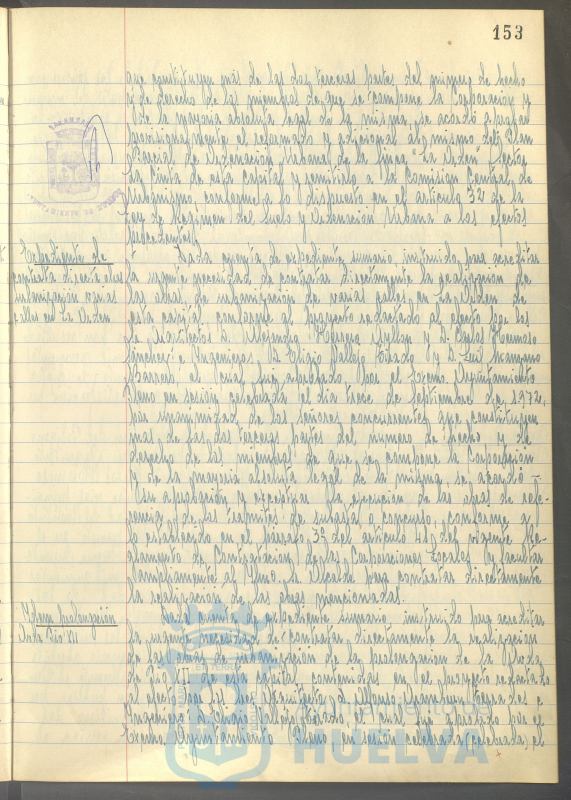 153
que constituyen más de las dos terceras partes del número de hecho
y de derecho de los miembros de que se compone la Corporación y
de la mayoría absoluta legal de la misma, se acordó aprobar
provisionalmente el reformado y adicional al mismo del Plan
Parcial de Ordenación Urbana de la finca "La Orden" sector
La Cinta de esta capital y remitirlo a la Comisión Central de
Urbanismo, conforme a lo dispuesto en el artículo 32 de la
Ley de Régimen del Suelo y Ordenación Urbana a los efectos
procedentes.
Expediente de
contrata directa obras
urbanización varias
calles en La Orden
Dada cuenta de expediente sumario, instruido para acreditar
la urgente necesidad de contratar directamente la realización de
las obras de urbanización de varias calles en La Orden de
esta capital conforme al proyecto redactado al efecto por los
Sr. Arquitectos D. Alejandro Herrero Ayllon y D. Carlos Hermoso
Sánchez e Ingenieros D. Eligio Vallejo Posado y D. Luis Manzano
Barrero, el cual fue aprobado por el Excmo. Ayuntamiento
Pleno en sesión celebrada el día trece de Septiembre de 1972,
por unanimidad de los señores concurrentes que constituyen
mas de las dos terceras partes del número de hecho y de
derecho de los miembros de que se compone la Corporación
y de la mayoría absoluta legal de la misma, se acordó
su aprobación y exceptuar la ejecución de las obras de refe-
rencia de los trámites de subasta o concurso, conforme a
lo establecido en el párrafo 3º del artículo 41 del vigente Re-
glamento de Contratación de las Corporaciones Locales y facultar
ampliamente al Iltmo. Sr. Alcalde para contratar directamente
la realización de las obras mencionadas.
Idem prolongación
Avda Pio XII
Dada cuenta de expediente sumario, instruido para acreditar
la urgente necesidad de contratar directamente la realización
de las obras de urbanización de la prolongación de la Avda.
de Pio XII de esta capital contenidas en el proyecto redactado
al efecto por el Sr. Arquitecto D. Alfonso Aramburu Terrades e
Ingeniero D. Eligio Vallejo Posado, el cual fue aprobado por el
Excmo. Ayuntamiento Pleno en sesión celebrada celebrada el
HUELVA